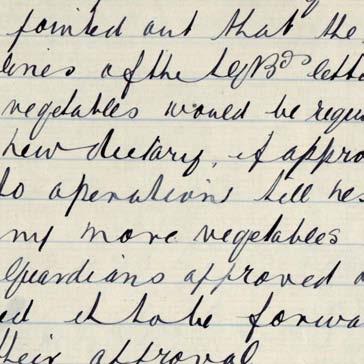 pointed out that the
lines of the LGBds lette
vegetables would be requ
new dietary, if appro
to operations till
any more vegetables
Guardians approved
ed it to be forwa
their approval